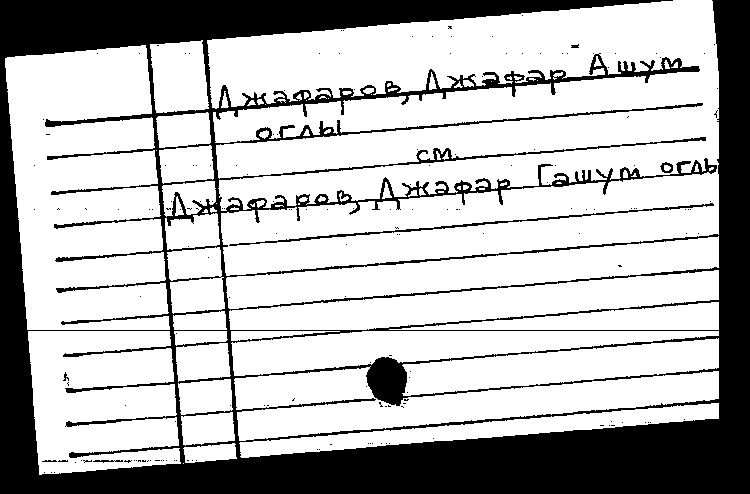 Джафаров, Джафар Ашум
оглы
см.
Джафаров, Джафар Гашум оглы